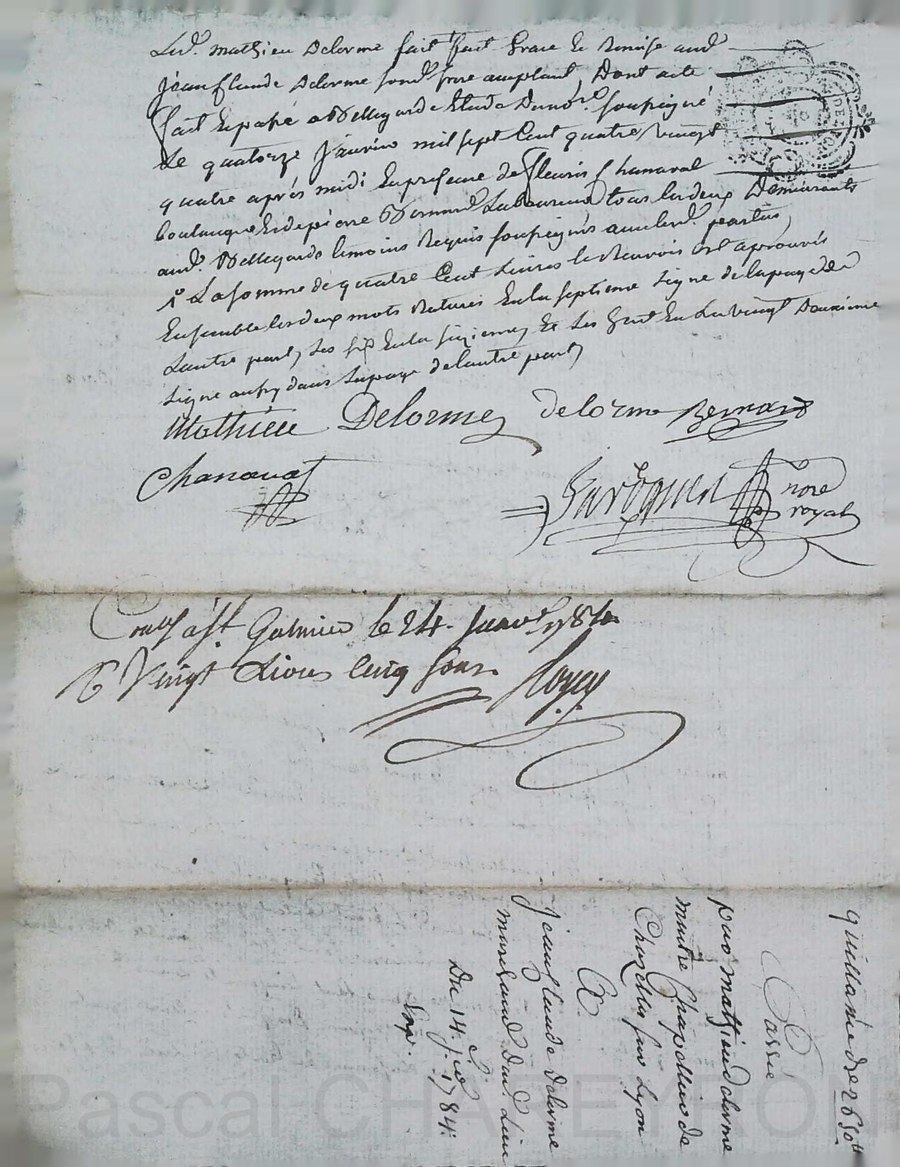 Led. mathieu Delorme fait grace et Remise aud.
jean Claude Delorme sond. frere acceptant, Dont acte
fait et passé a Bellegarde Etude du nore. soussigné
Le quatorze janvier mil sept Cent quatre vingt
quatre après midi en presence de fleuris Chanavat
boulanger et de pierre Bernard Laboureur tous les deux Demeurants
aud. Bellegarde temoins Requis soussignés avec lesd. parties
La somme de quatre Cent Livres le Renvois est aprouvés
Ensemble les deux mots Raturés En la septieme Ligne de la page de
L'autre part, les six En la sizieme, et Les sept En La vingt Deuxieme
Ligne aussy dans La page de l'autre part
Mathieu Delorme delorme Bernard
Chanavat
nore
royal
Con. a St. Galmier le 24. janv. 1784.
R Vingt Livres Cinq sous
quittance de 2650tt
Passée
par mathieu delorme
maitre Chapellier de
Chazelles sur Lyon
A
jean Claude Delorme
marchand Dud. Lieu
Du 14. jer. 1784.
Exp.